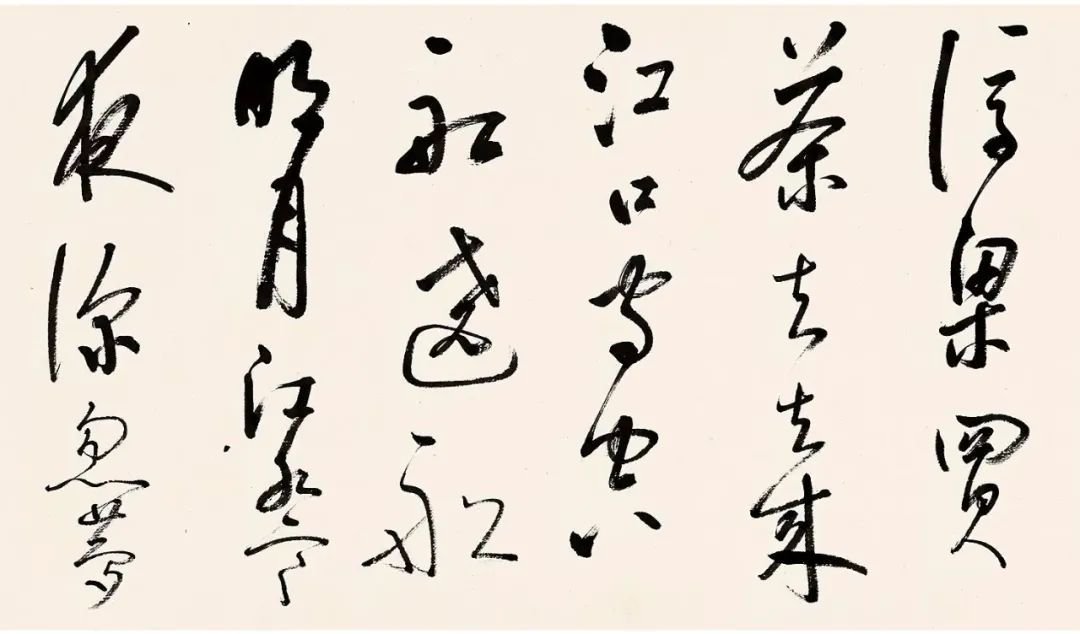 浮梁買
茶去去來
江口守空
船遶船
明月江水寒
夜深忽夢